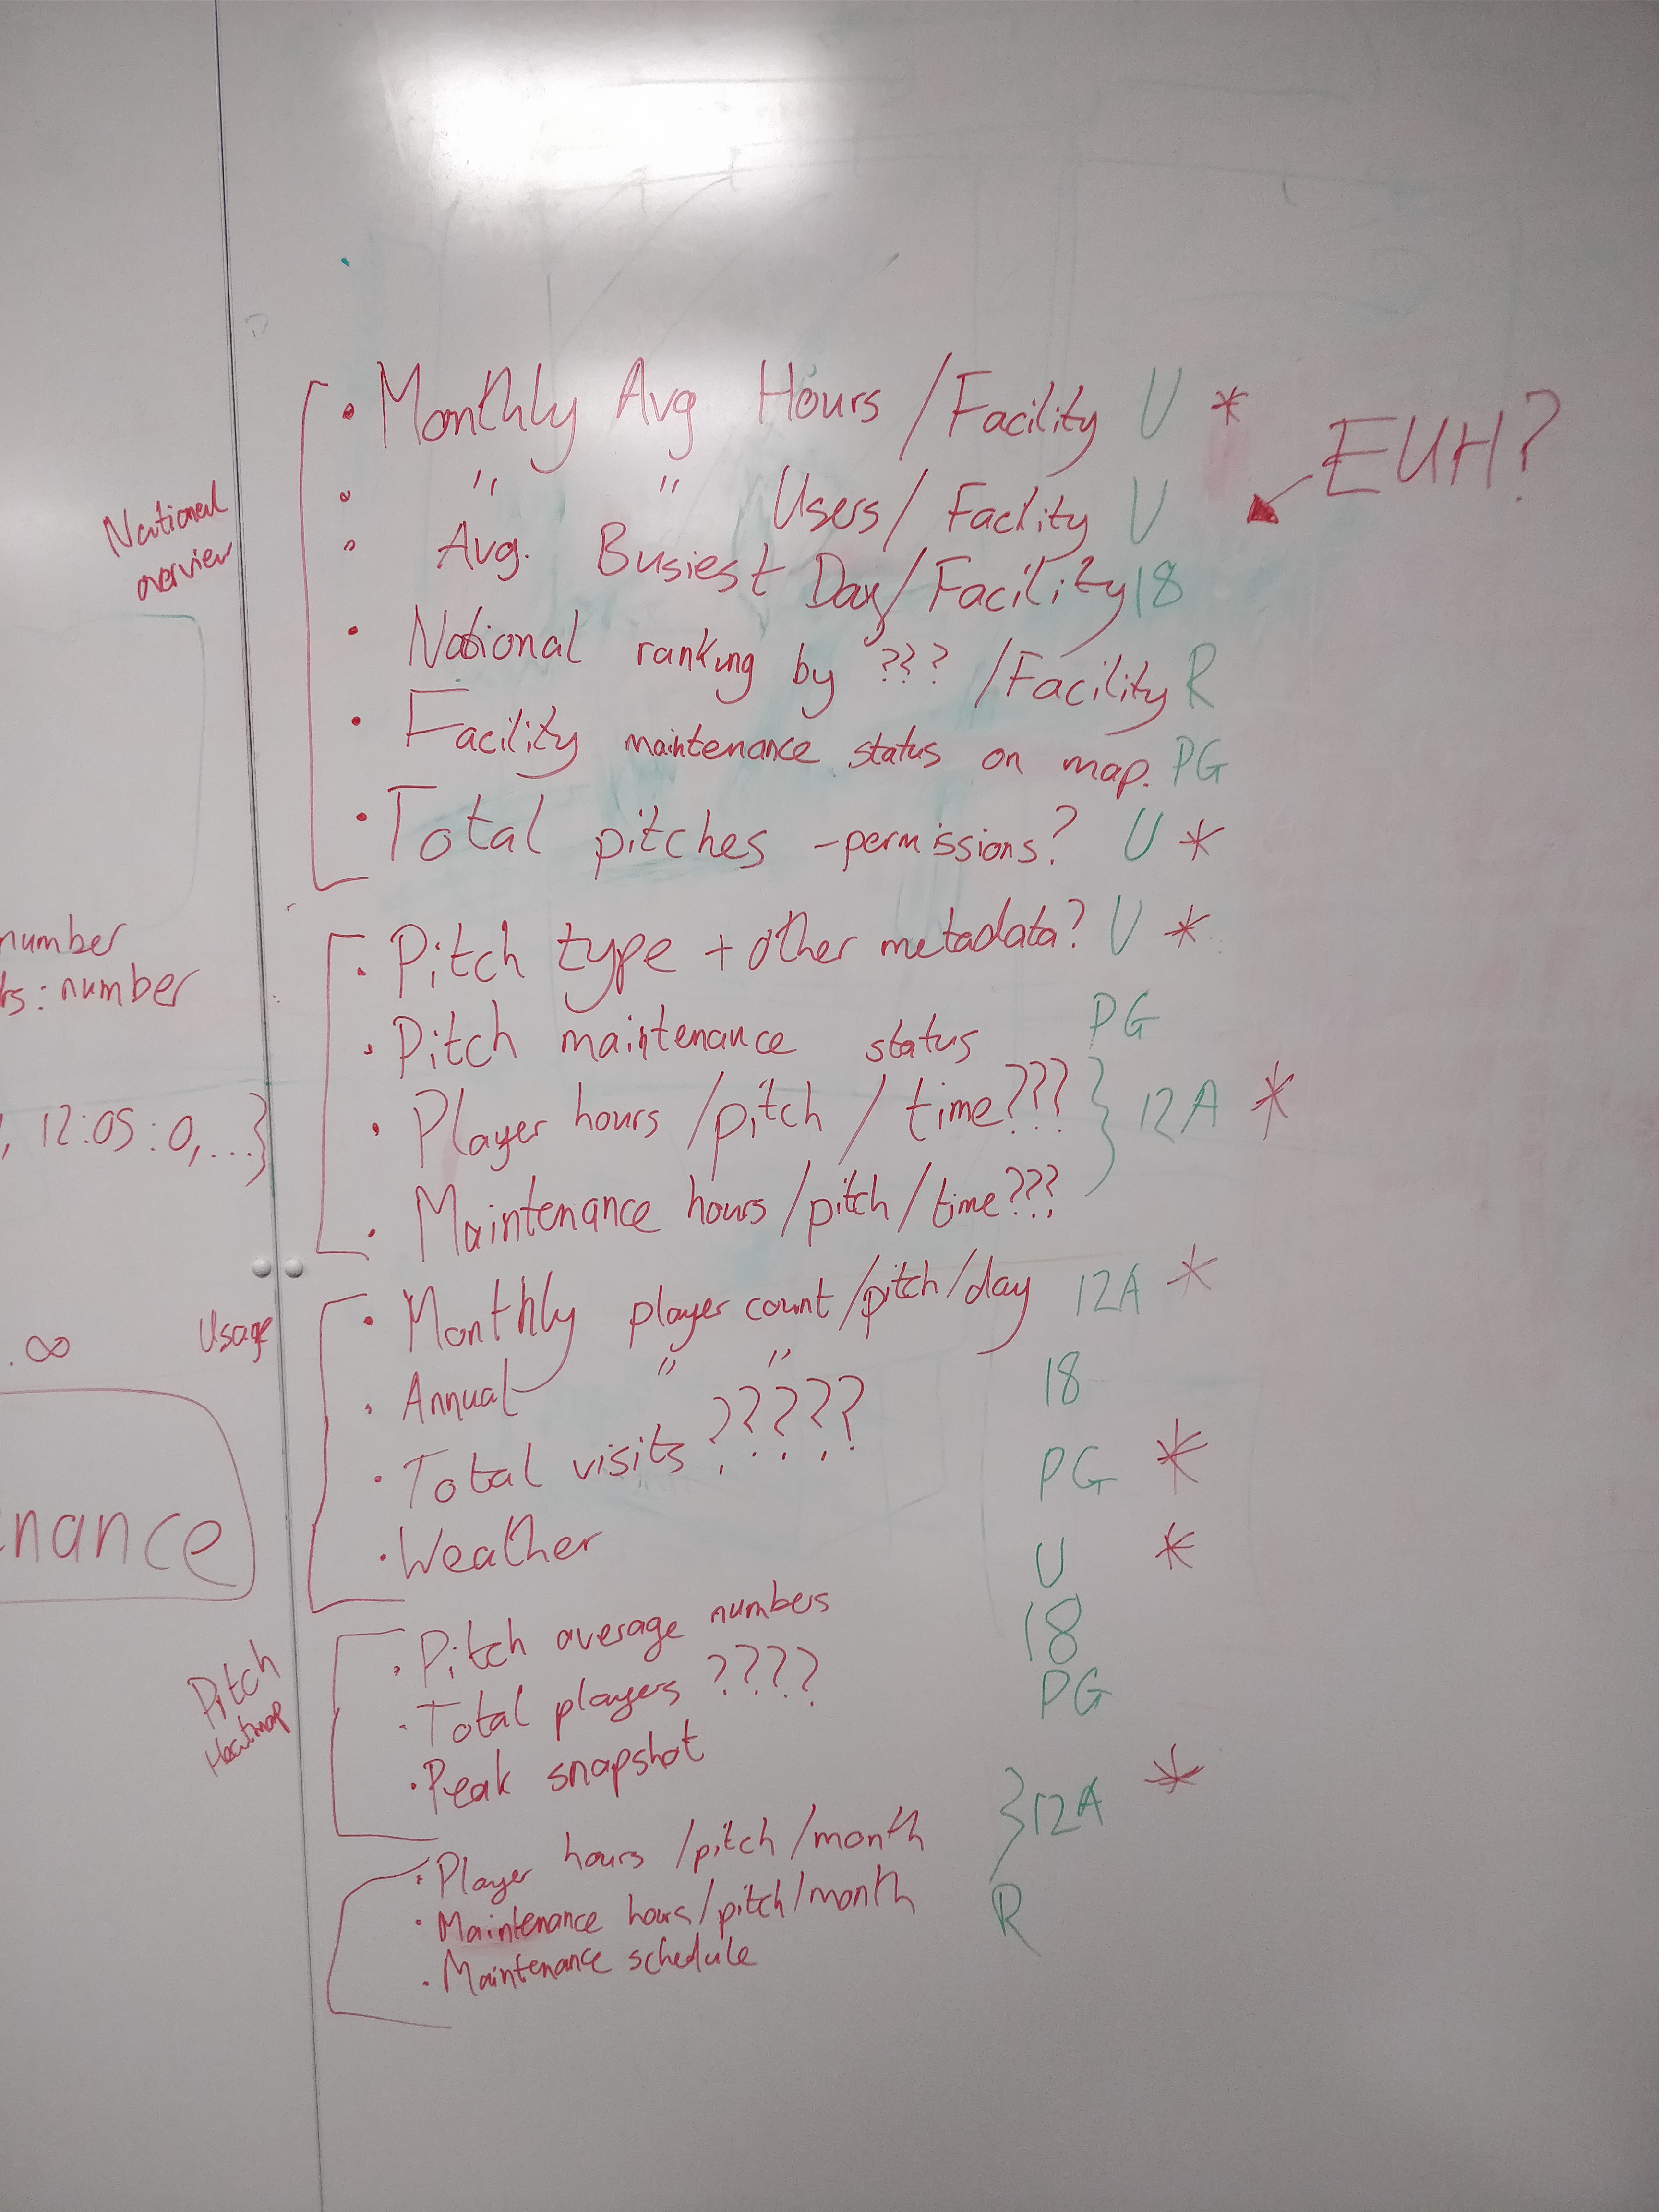 • Monthly Avg Hours / Facility U *
• " " Users / Facility U
EUH?
• Avg. Busiest Day / Facility 18
National
overview
• National ranking by ??? / Facility R
• Facility maintenance status on map. PG
• Total pitches - permissions? U *
• Pitch type + other metadata? U *
number
: number
• Pitch maintenance status PG
• Player hours / pitch / time??? } 12A *
, 12:05:0,...}
• Maintenance hours / pitch / time???
Usage
• Monthly player count / pitch / day 12A *
. ∞
• Annual " " 18
• Total visits ????? PG *
• Weather U *
nance
Pitch
Heatmap
• Pitch average numbers 18
• Total players ???? PG
• Peak snapshot
• Player hours / pitch / month } 12A *
• Maintenance hours / pitch / month R
• Maintenance schedule